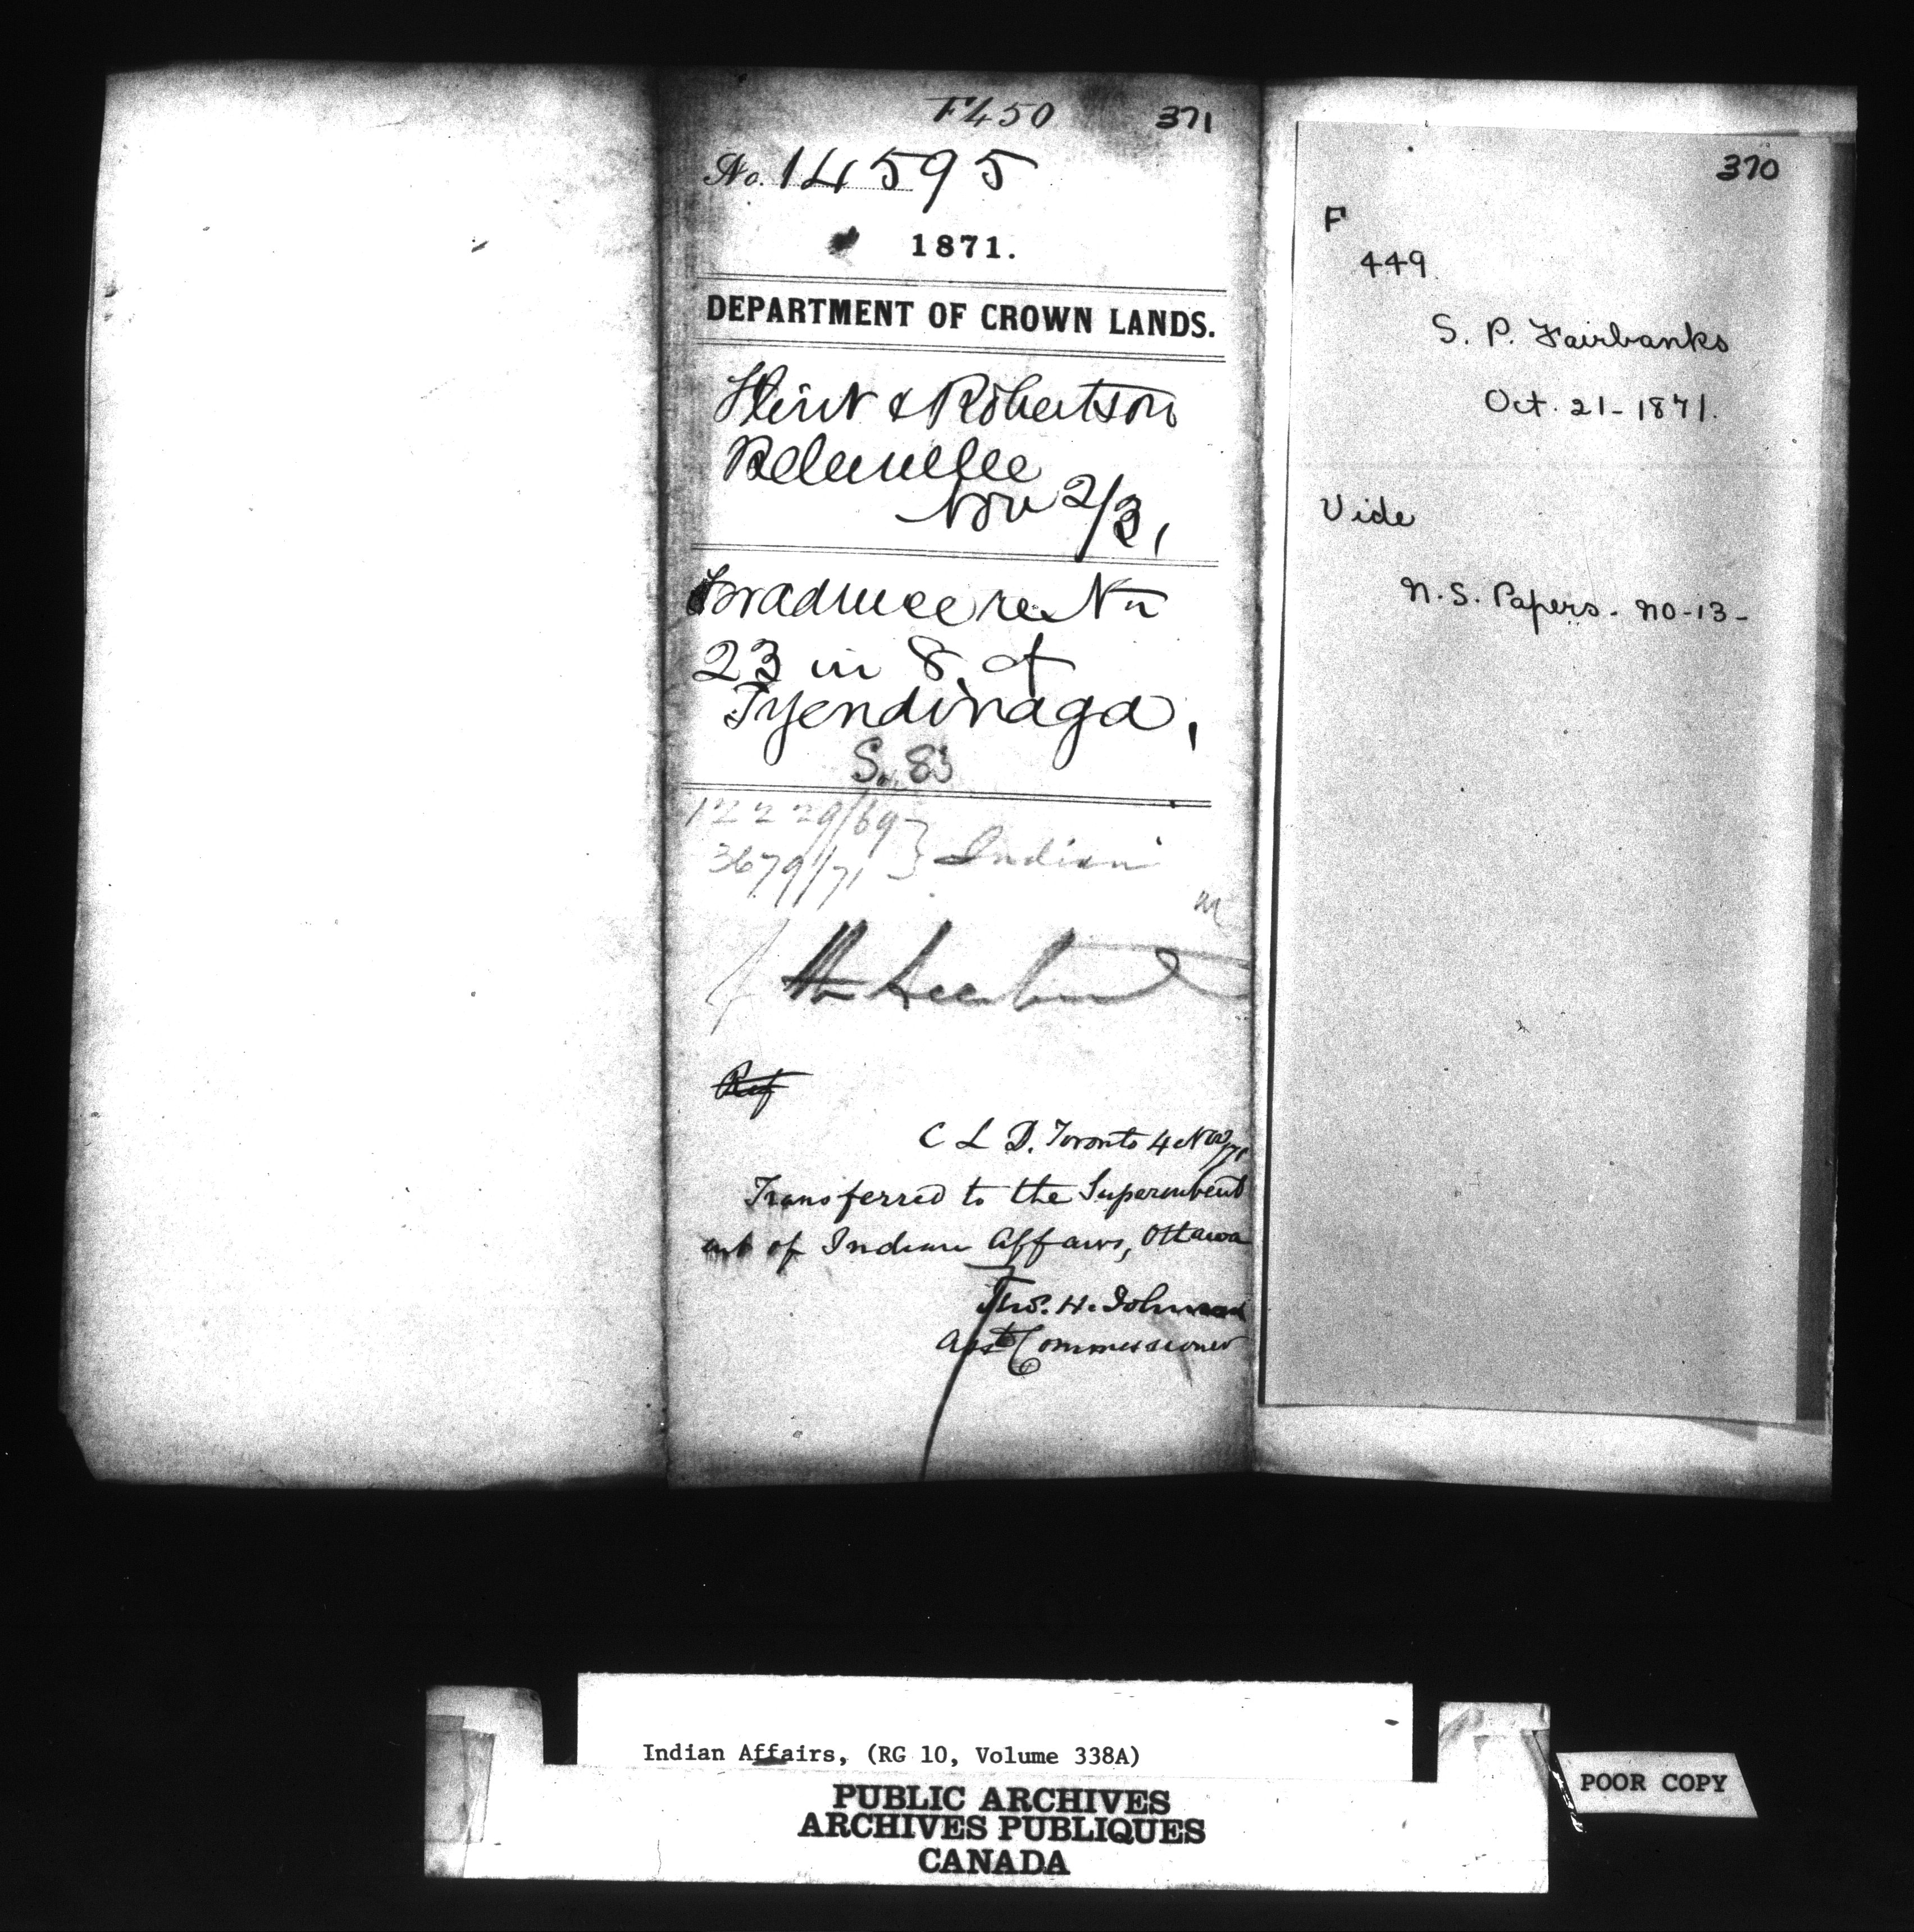 F450 371
No. 14595
1871.
DEPARTMENT OF CROWN LANDS.
Flint & Robertson
Belleville
Nov 2/3,
23 in 8. of
Tyendinaga,
S. 83
12229/69 }
3679/71 } Indian
Ref
C L D. Toronto 4 Nov/71
Transferred to the Superintend
ent of Indian Affairs, Ottawa
Thos. H. Johnson
Asst Commissioner
370
F
449
S. P. Fairbanks
Oct. 21-1871.
Vide
N. S. Papers. no-13-
Indian Affairs, (RG 10, Volume 338A)
PUBLIC ARCHIVES
ARCHIVES PUBLIQUES
CANADA
POOR COPY